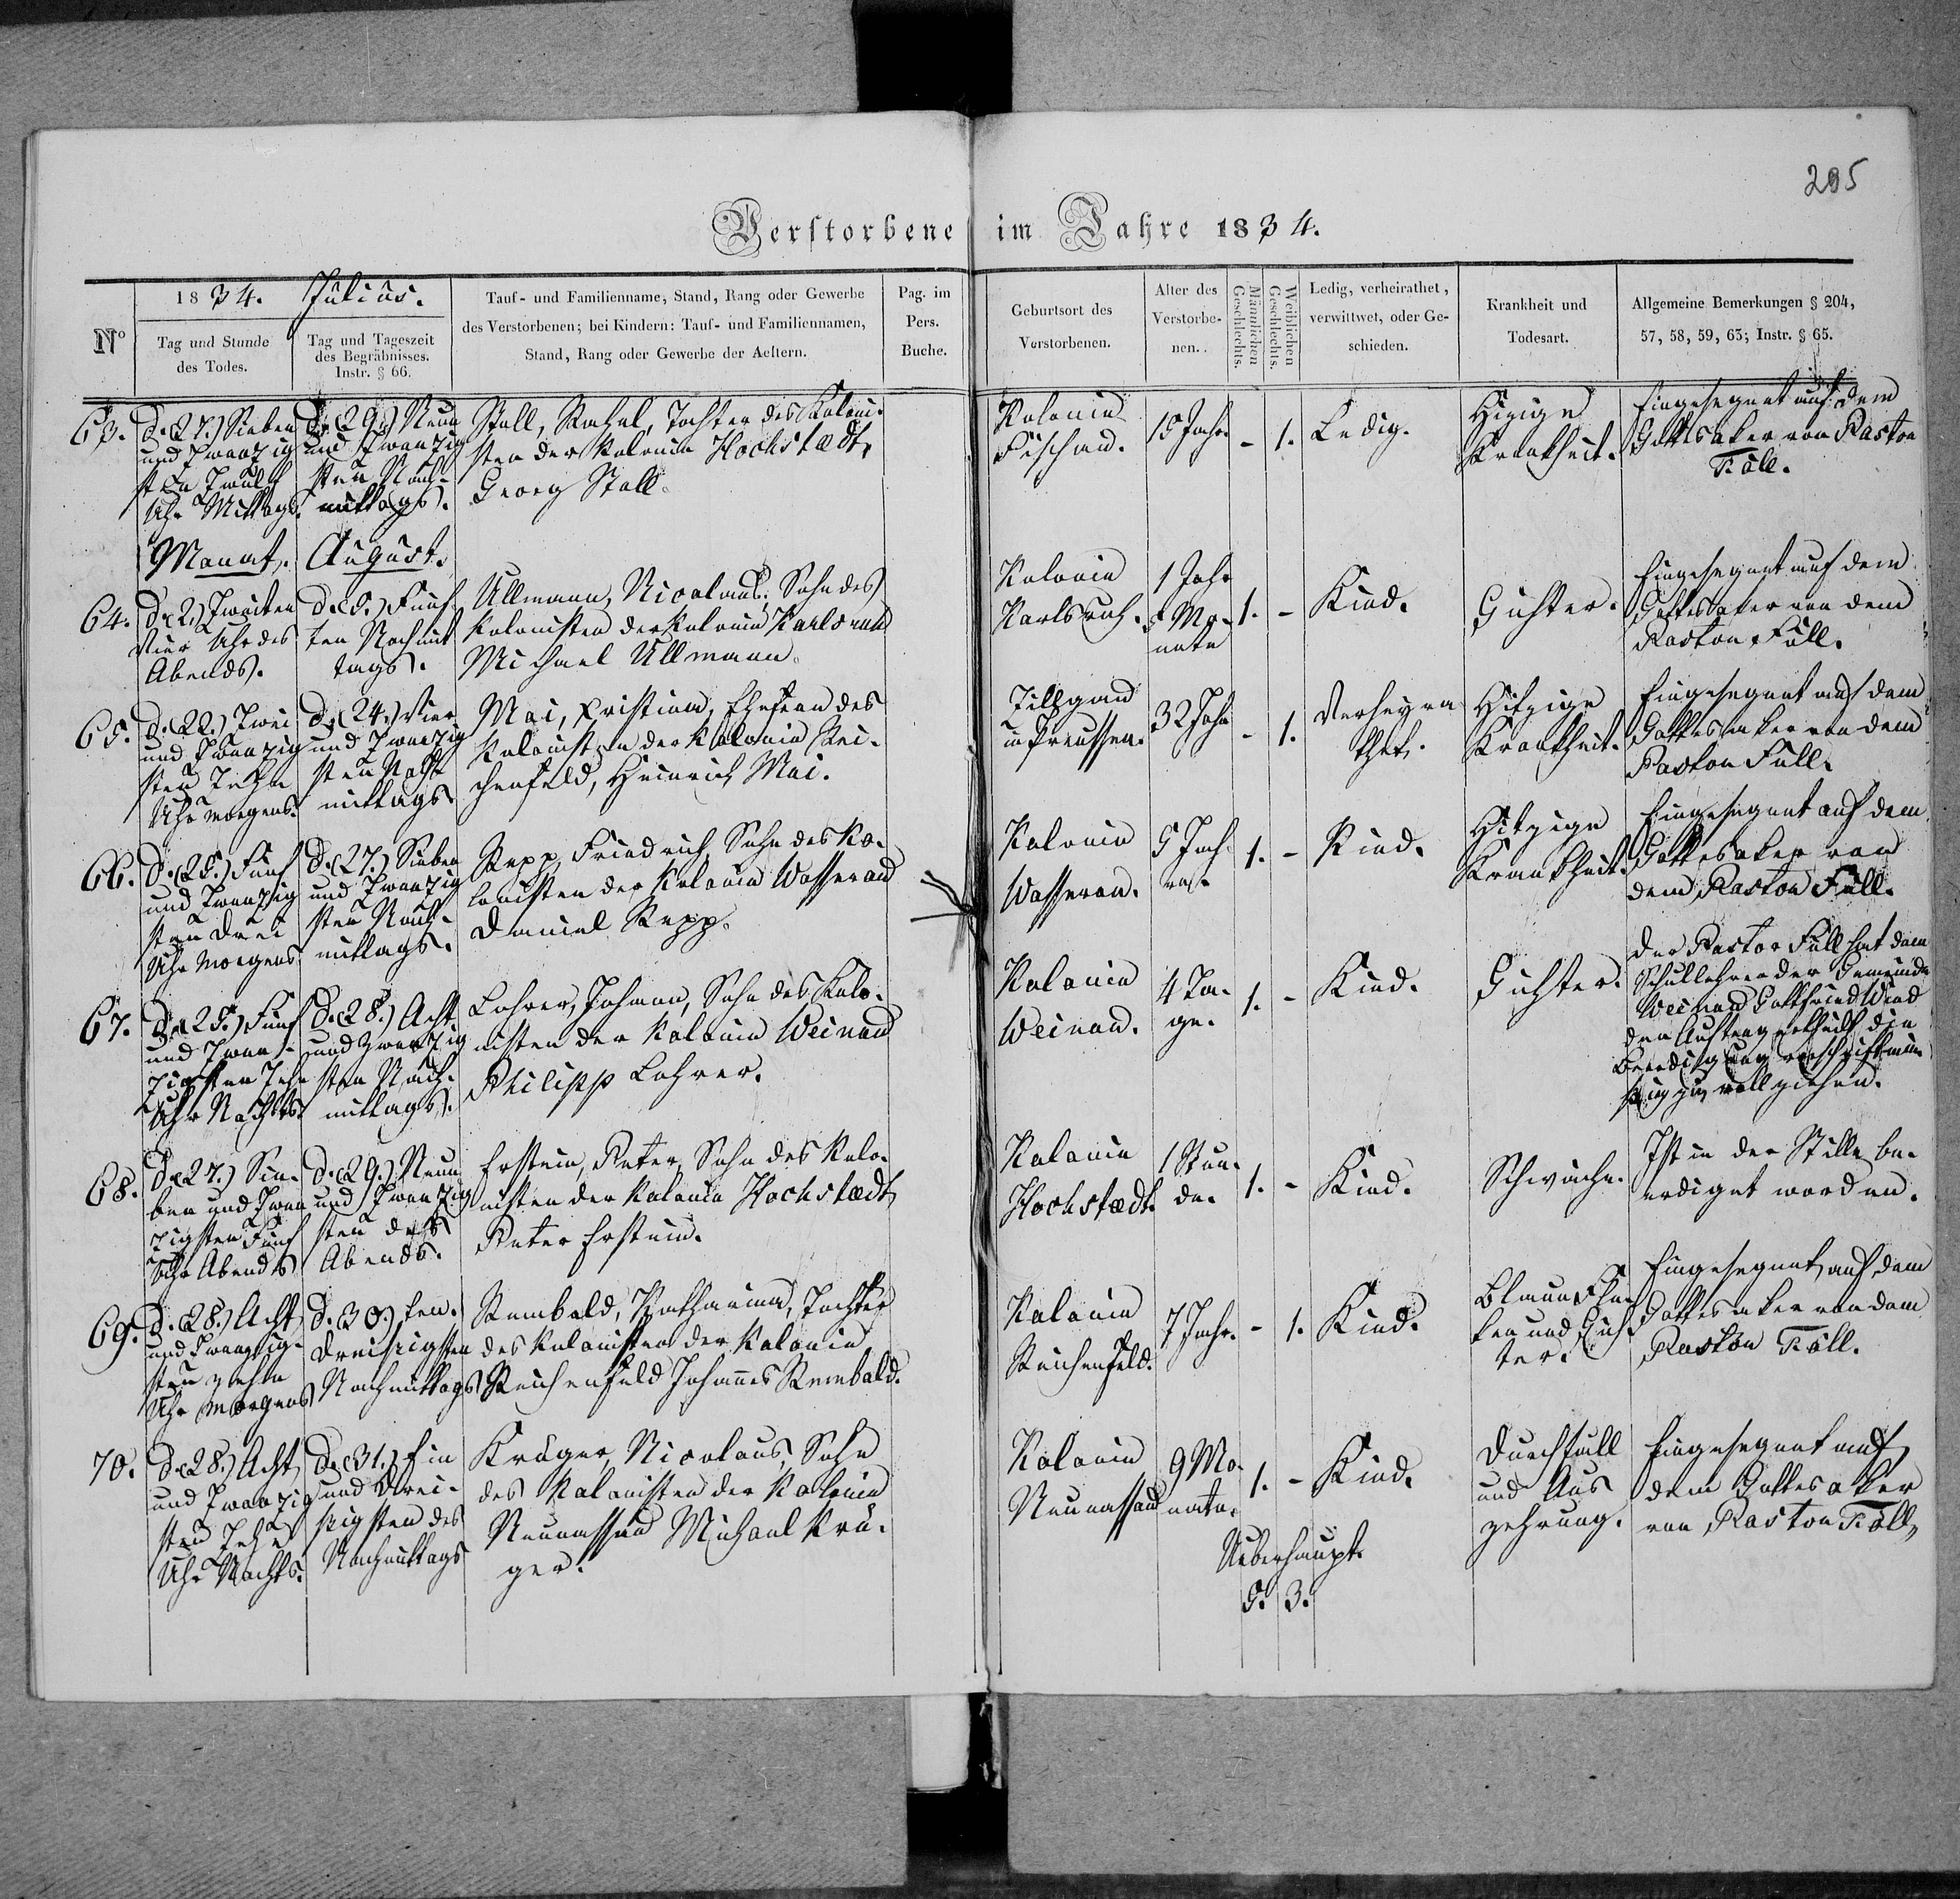 205
Verstorbene im Jahre 1834.
Nº
1834. Julius.
Tag und Stunde
des Todes.
Tag und Tageszeit
des Begräbnisses.
Instr. § 66.
Tauf- und Familienname, Stand, Rang oder Gewerbe
des Verstorbenen; bei Kindern: Tauf- und Familiennamen,
Stand, Rang oder Gewerbe der Aeltern.
Pag. im
Pers.
Buche.
Geburtsort des
Verstorbenen.
Alter des
Verstorbe-
nen..
Männlichen
Geschlechts.
Weiblichen
Geschlechts.
Ledig, verheirathet,
verwittwet, oder Ge-
schieden.
Krankheit und
Todesart.
Allgemeine Bemerkungen § 204,
57, 58, 59, 63; Instr. § 65.
63.
D. (27.) Sieben
und Zwanzig
sten Zwölf
Uhr Mittags.
D. (29.) Neun
und Zwanzig
sten Nach-
mittags.
Stoll, Rahel, Tochter des Koloni-
sten der Kolonie Hochstædt,
Georg Stoll.
Kolonie
Fischau.
15 Jahr.
- 1.
Ledig.
Hizige
Krankheit.
Eingesegnet auf dem
Gottesaker von Pastor
Föll.
Monat. August.
64.
D. (2.) Zweiten
Vier Uhr des
Abends.
D. (5.) Fünf
ten Nachmit
tags.
Ullmann, Nicolaus, Sohn des
Kolonisten der Kolonie Karlsruh
Michael Ullmann.
Kolonie
Karlsruh.
1 Jahr
5 Mo-
nate
1. -
Kind.
Gichter.
Eingesegnet auf dem
Gottesaker von dem
Pastor Föll.
65.
D. (22.) Zwei
und Zwanzig
sten Zehn
Uhr morgens.
D. (24.) Vier
und Zwanzig
sten Nach
mittags
Mai, Cristina, Ehefrau des
Kolonisten der Kolonie Rei-
chenfeld, Heinrich Mai.
in Preussen.
32 Jahr
- 1.
Verheyra
thet.
Hitzige
Krankheit.
Eingesegnet auf dem
Gottesaker von dem
Pastor Föll.
66.
D. (25.) Fünf
und Zwanzig
sten Drei
Uhr Morgens
D. (27.) Sieben
und Zwanzig
sten Nach-
mittags.
Repp, Friedrich, Sohn des Ko-
lonisten der Kolonie Wasserau
Daniel Repp.
Kolonie
Wasserau.
5 Jah-
re.
1. -
Kind.
Hitzige
Krankheit.
Eingesegnet auf dem
Gottesaker von
dem Pastor Föll.
67.
D. (25.) Fünf
und Zwan-
zigsten Zehn
Uhr Nachts.
D. (28.) Acht
und Zwanzig
sten Nach-
mittags.
Lohrer, Johann, Sohn des Kolo-
nisten der Kolonie Weinau
Philipp Lohrer.
Kolonie
Weinau.
4 Ta-
ge.
1. -
Kind.
Gichter.
Der Pastor Föll hat dem
Schullehrer der Gemeinde
Weinau Gottfried Wied
den Auftrag ertheilt die
Beerdigung vorschriftmäs-
sig zu vollziehen.
68.
D. (27.) Sie-
ben und Zwan
zigsten Fünf
Uhr Abends
D. (29.) Neun
und Zwanzig
sten des
Abends.
Erstein, Peter, Sohn des Kolo-
nisten der Kolonie Hochstædt,
Peter Erstein.
Kolonie
Hochstædt.
1 Stun-
de.
1. -
Kind.
Schwäche.
Ist in der Stille be-
erdiget worden.
69.
D. (28.) Acht
und Zwanzig-
sten zehn
Uhr morgens
D. (30.) ten.
Dreisigsten
Nachmittags
Rembold, Katharina, Tochter
des Kolonisten der Kolonie
Reichenfeld Johannes Rembold.
Kolonie
Reichenfeld.
7 Jahr.
- 1.
Kind.
Blaue Fle-
ken und Gich-
ter.
Eingesegnet auf dem
Gottesaker von dem
Pastor Föll.
70.
D. (28.) Acht
und Zwanzig
sten Zehn
Uhr Nachts.
D. (31.) Ein
und Drei-
sigsten des
Nachmittags
Krüger, Nicolaus, Sohn
des Kolonisten der Kolonie
Neunassau Michael Krü-
ger.
Kolonie
Neunassau
9 Mo-
nate.
1. -
Kind.
Durchfall
und Aus
zehrung.
Eingesegnet auf
dem Gottesaker
von Pastor Föll
Ueberhaupt.
5. 3.